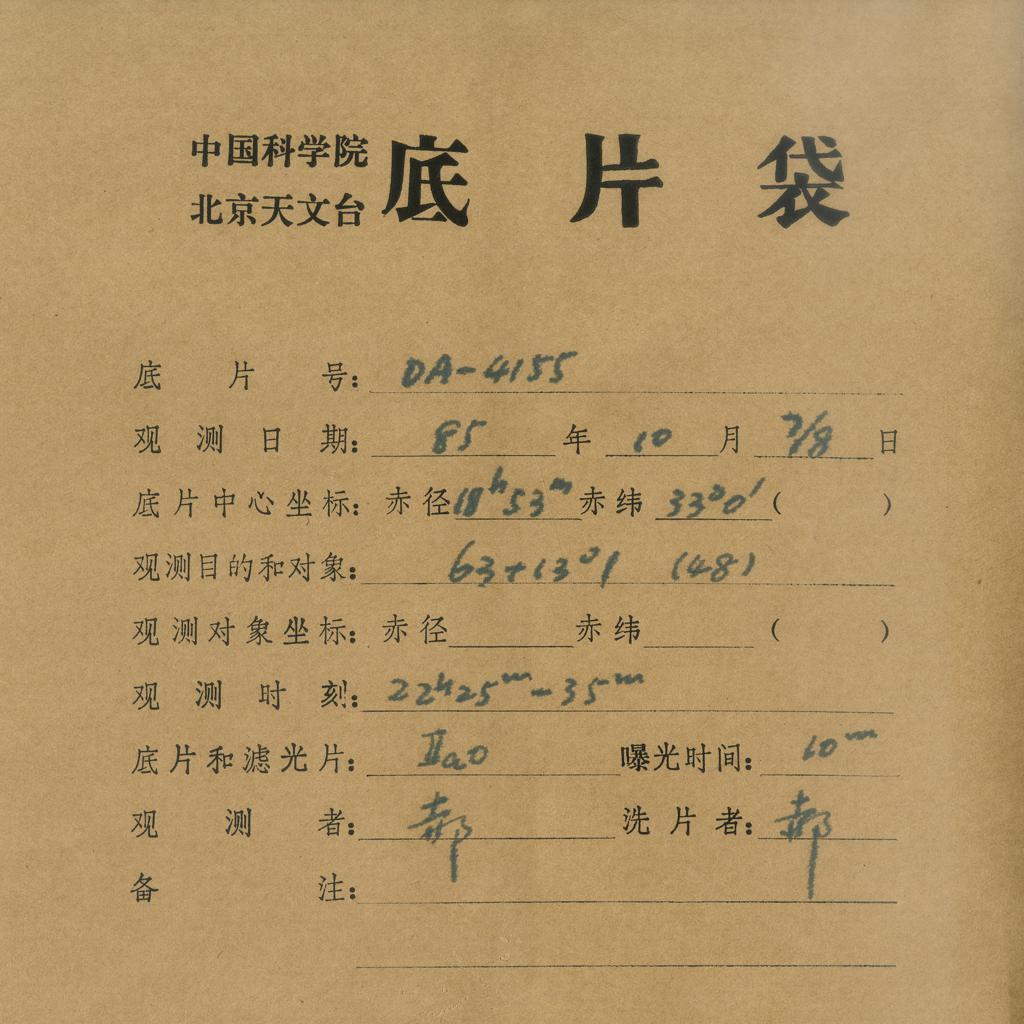 中国科学院
北京天文台
底片袋
底片号：DA-4155
观测日期：85年10月7/8日
底片中心坐标：赤径18ʰ53ᵐ赤纬33°01′（ ）
观测目的和对象：63+13°1 (48)
观测对象坐标：赤径 赤纬 （ ）
观测时刻：22ʰ25ᵐ-35ᵐ
底片和滤光片：IIaO 曝光时间：10ᵐ
观测者：郝 洗片者：郝
备注：